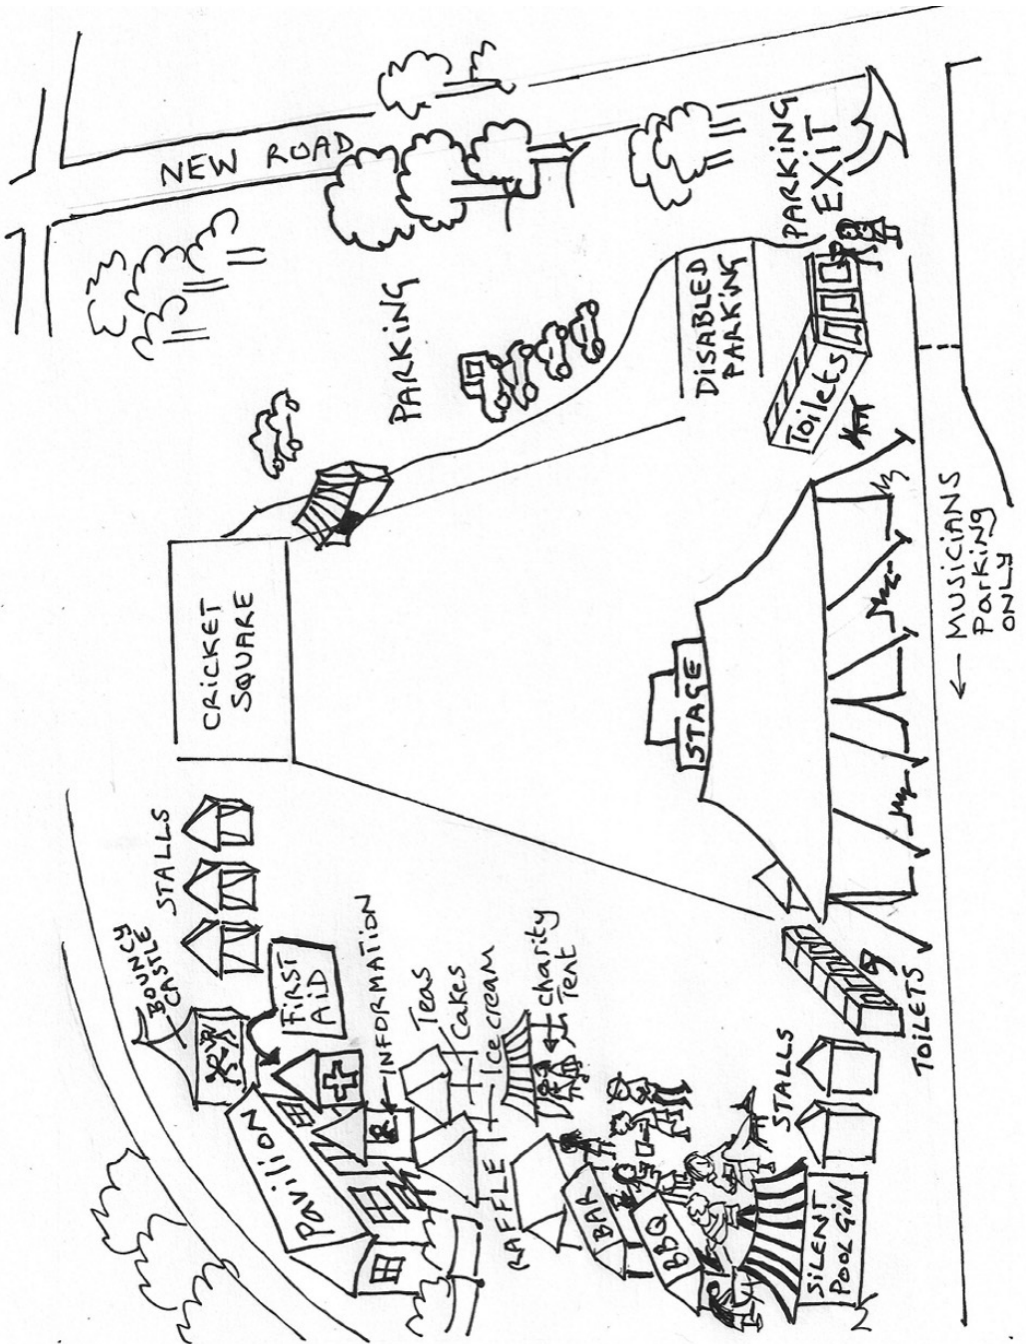 NEW ROAD
PARKING
EXIT
PARKING
DISABLED
PARKING
Toilets
CRICKET
SQUARE
STAGE
← MUSICIANS
Parking
ONLY
STALLS
BOUNCY
CASTLE
FIRST
AiD
INFORMATION
Pavilion
Teas
Cakes
Ice cream
Charity
Tent
RAFFLE
BAR
BBQ
STALLS
TOiLETS
SiLENT
POOL GiN